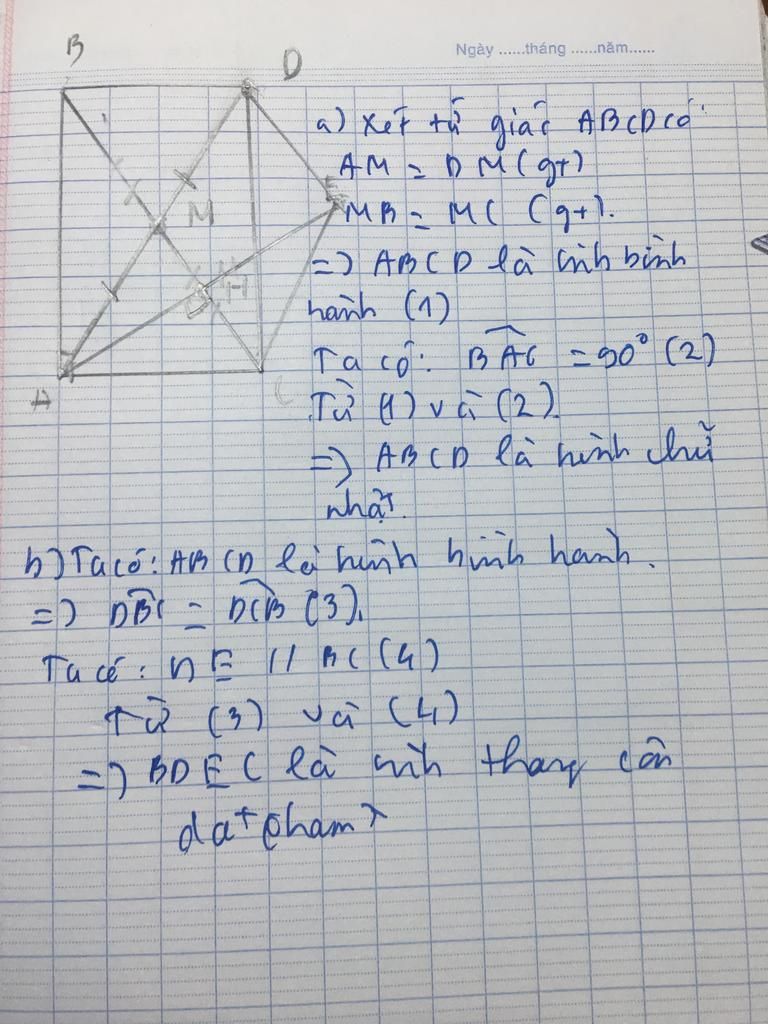 B
D
Ngày ......tháng ......năm......
M
H
E
A
C
a) Xét tứ giác ABCD có
AM = DM (gt)
MB = MC (gt).
=> ABCD là hình bình
hành (1)
Ta có: BAC = 90° (2)
Từ (1) và (2)
=> ABCD là hình chữ
nhật.
b) Ta có: ABCD là hình bình hanh.
=> DBC = DCB (3).
Ta có: DE // BC (4)
Từ (3) và (4)
=> BDEC là hình thang cân